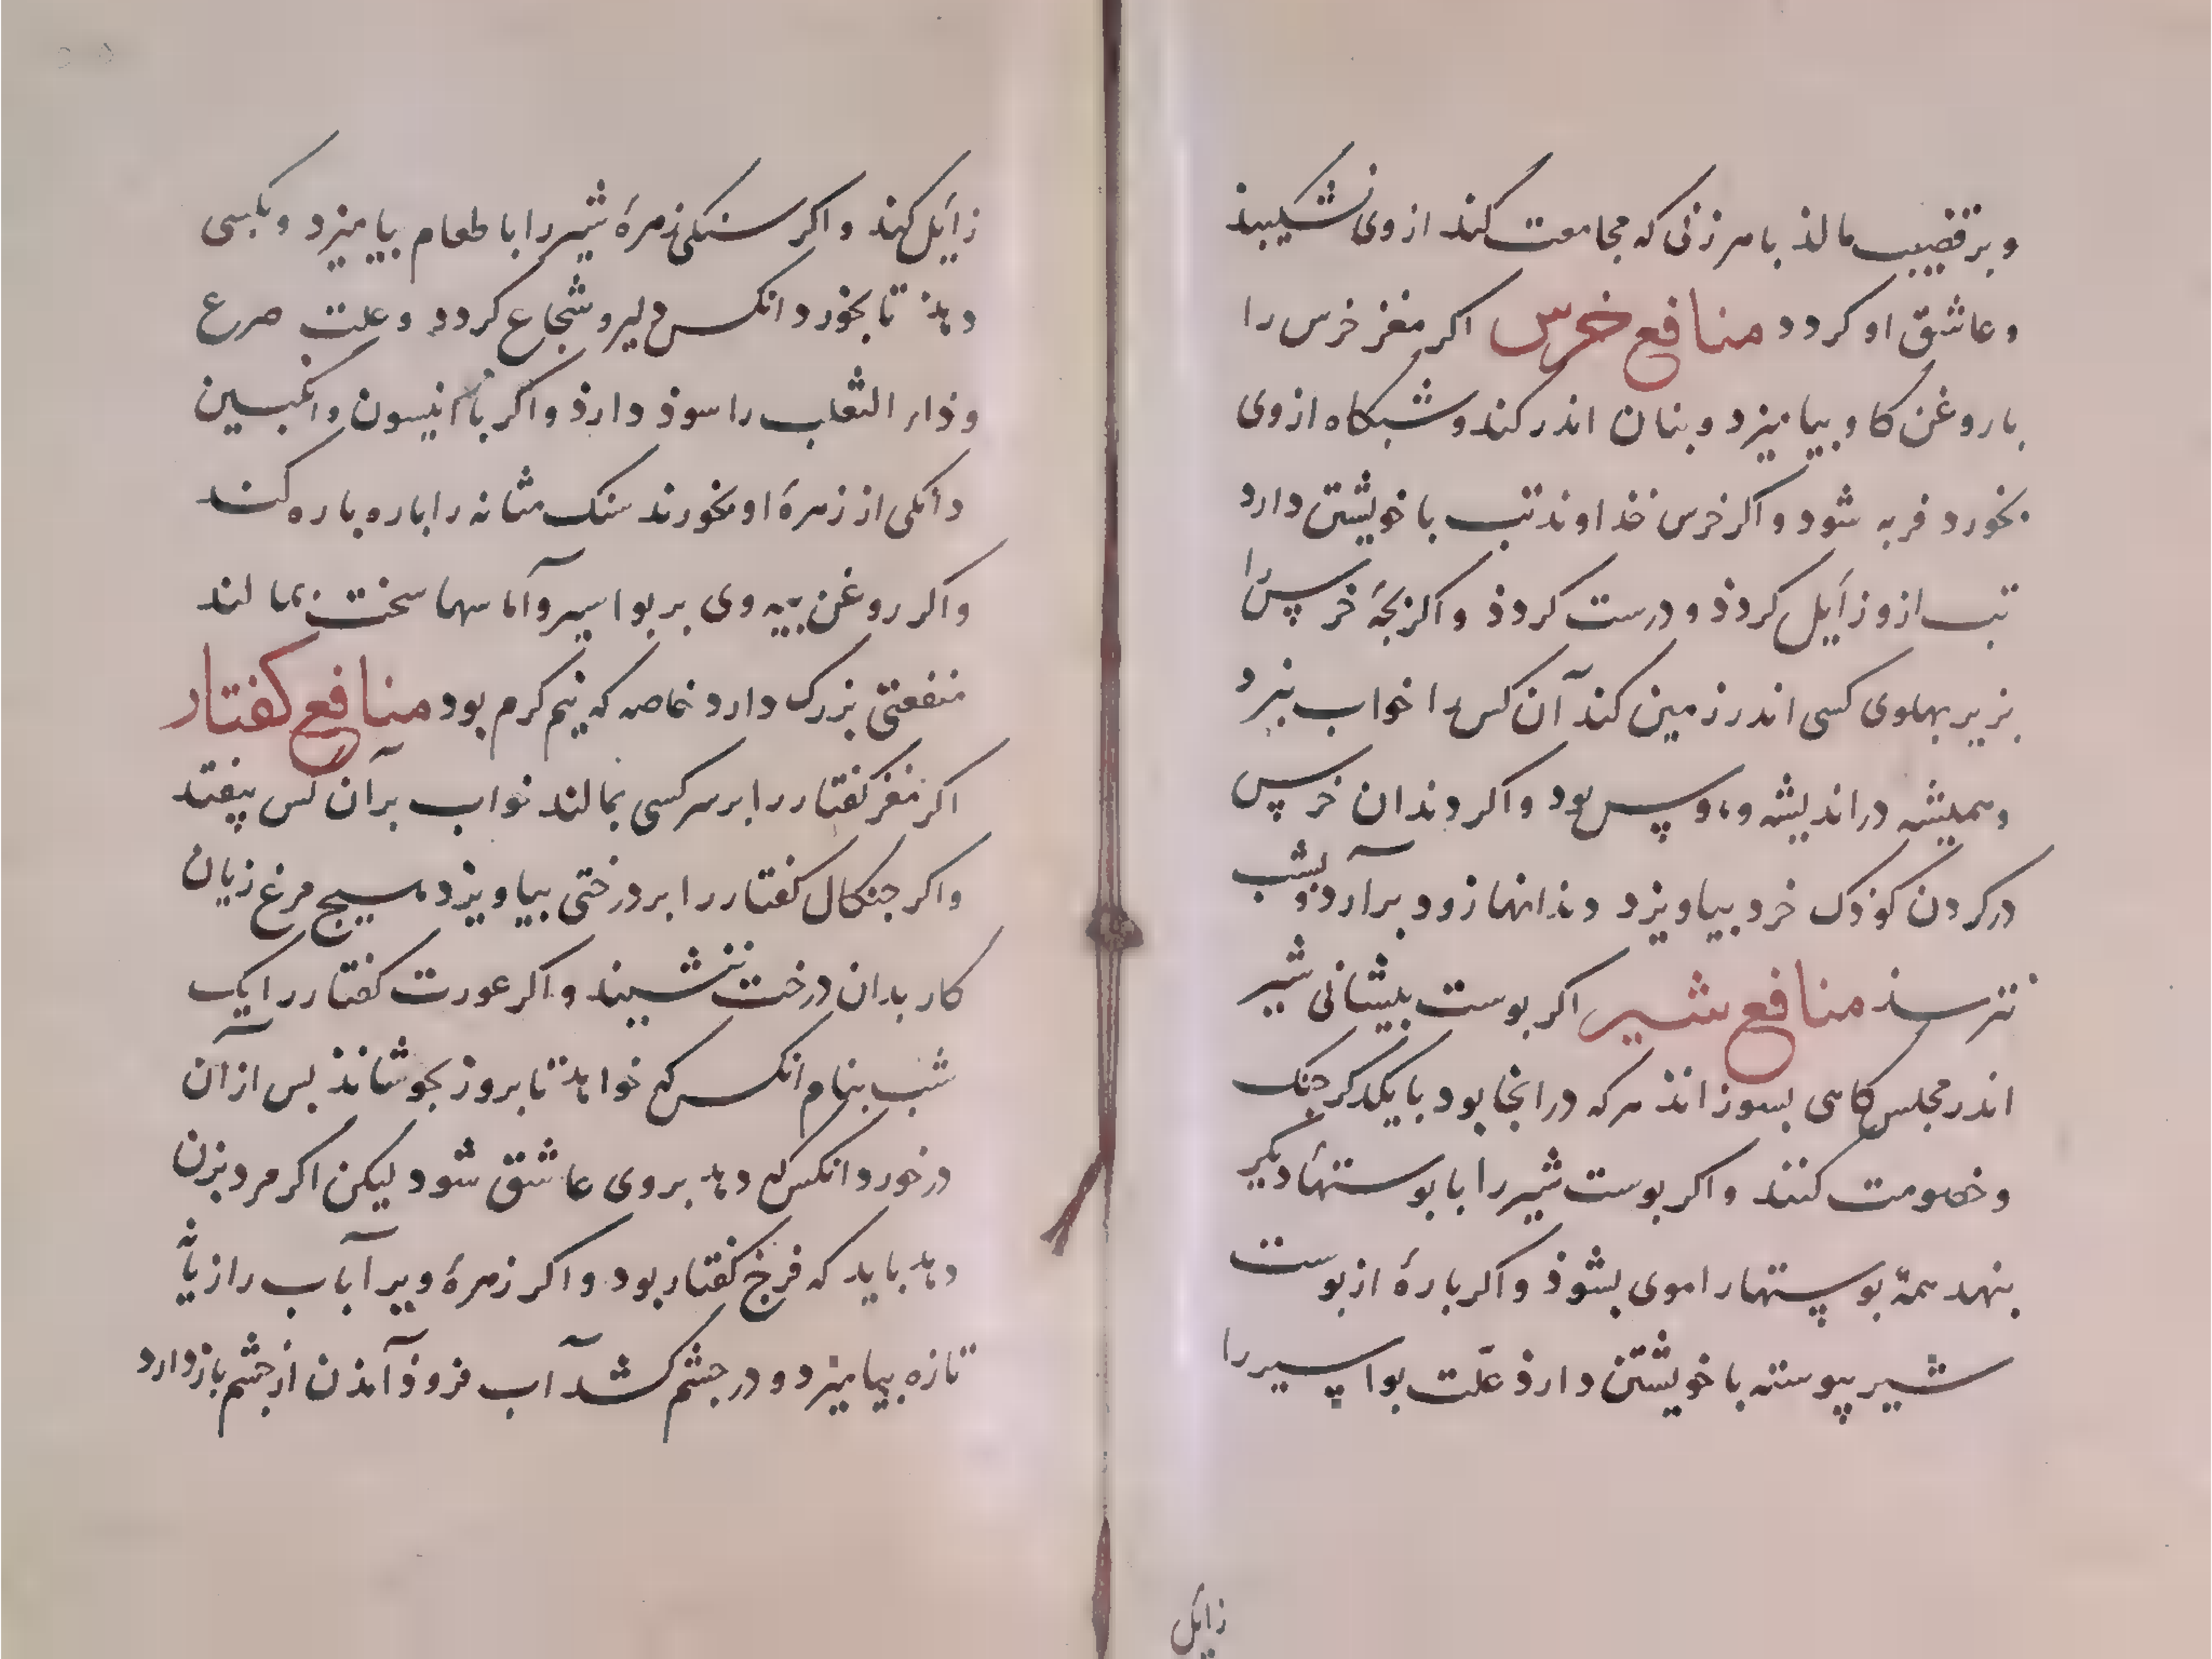 و بر قضیب مالذ با هر زنی که مجامعت کند از وی نشکیبذ
و عاشق او کردد منافع خرس اکر مغز خرس را
با روغن کاو بیامیزد و بنان اندر کند و شبکاه از وی
بخورد فربه شود و اکر خرس خذاوند تب با خویشتن دارد
تب ازو زایل کردذ و درست کردذ و اکر بچهٔ خرس را
بزیر بهلوی کسی اندر زمین کند آن کس را خواب نبرد
و همیشه در اندیشه و وسوس بود و اکر دندان خرس
در کردن کوذک خرد بیاویزد دندانها زود برآرد و بشب
نترسذ منافع شیر اکر بوست بیشانی شیر
اندر مجلس کاهی بسوزانذ هرکه در انجا بود با یکدکر جنک
و خصومت کنند و اکر بوست شیر را با بوستهاء دیکر
بنهد همهٔ بوستها را موی بشوذ و اکر بارهٔ از بوست
شیر پیوسته با خویشتن دارذ علّت بواسیر را
زایل
زایل کند و اکر سنکی زهرهٔ شیر را با طعام بیامیزد و بکسی
دهذ تا بخورد انکس دلیر و شجاع کردد و علت صرع
و ذاء الثعلب را سوذ دارذ و اکر با انیسون وانکبین
دانکی از زهرهٔ او بخورند سنک مثانه را باره باره کند
و اکر روغن بیه وی بر بواسیر و آماسهاء سخت بمالند
منفعتی بزرک دارد خاصه که نیم کرم بود منافع کفتار
اکر مغز کفتار را بر سر کسی بمالند خواب بر آن کس بیفتد
و اکر جنکال کفتار را بر درختی بیاویزد هیچ مرغ زیان
کار بدان درخت ننشیند و اکر عورت کفتار را یک
شب بنام انکس که خواهد تا بروز بجوشانذ بس از آن
در خورد انکس که دهد بر وی عاشق شود لیکن اکر مرد بزن
دهد باید که فرج کفتار بود و اکر زهرهٔ ویرا آب رازیانه
تازه بیامیزد و در جشم کشد آب فروذ آمذن از جشم باز دارد